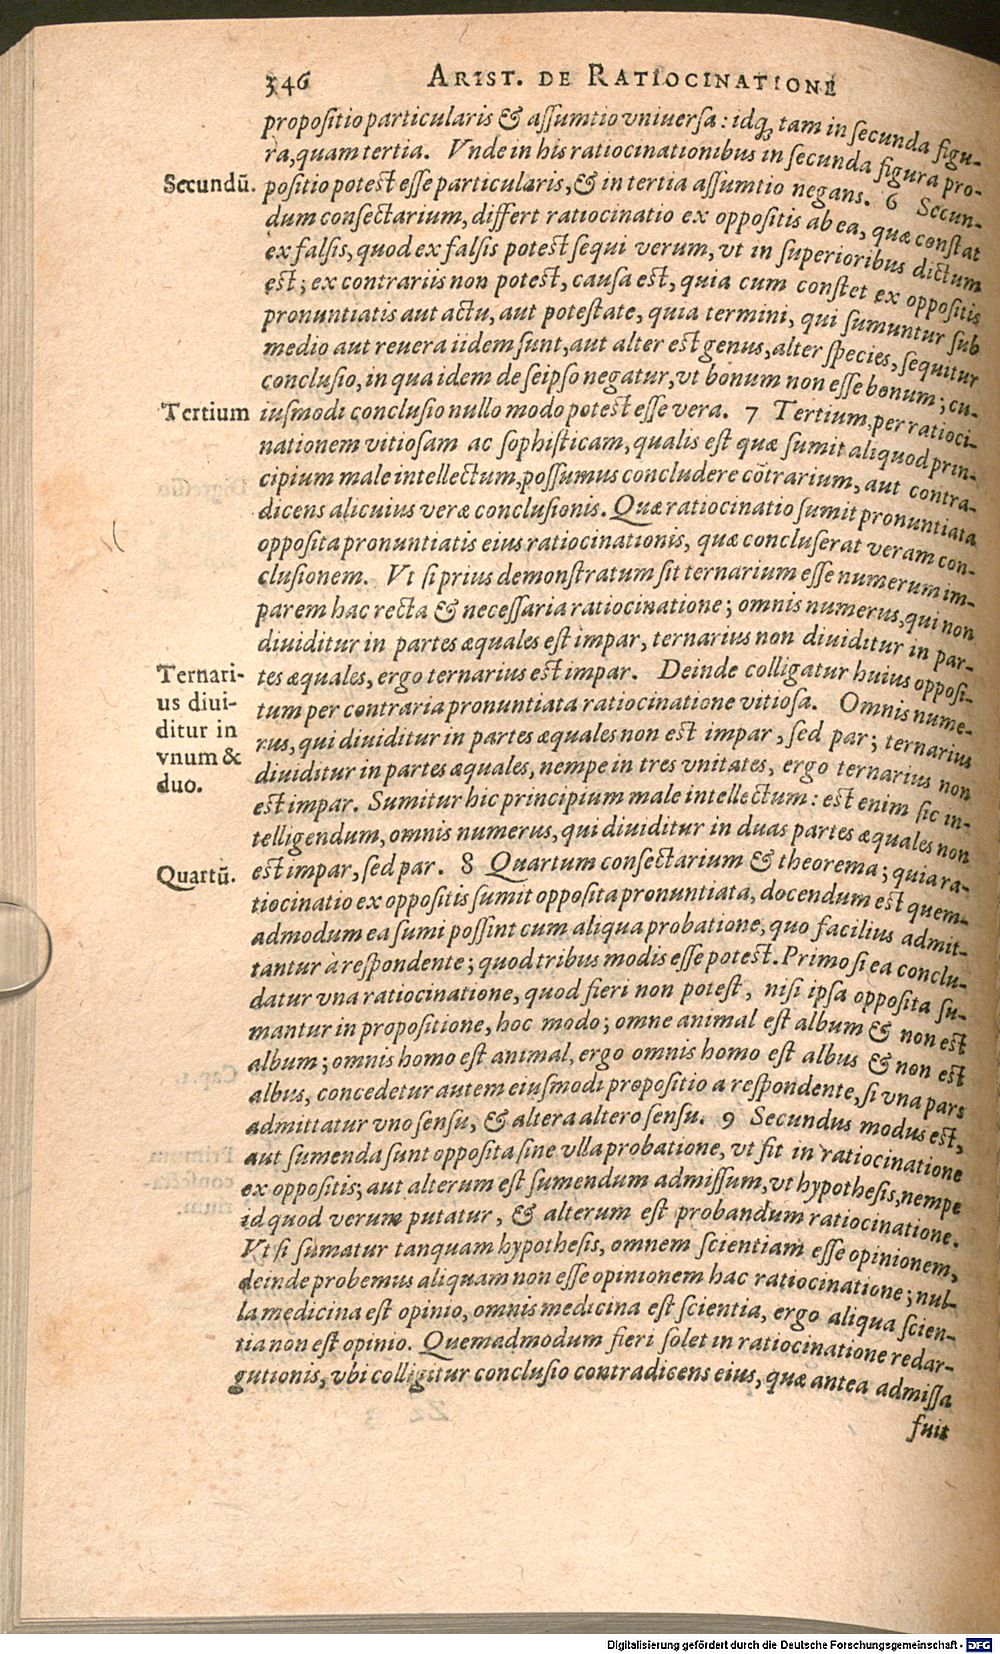 346 ARIST. DE RATIOCINATIONE
propositio particularis & assumtio vniuersa: idq; tam in secunda figu-
ra, quam tertia. Vnde in his ratiocinationibus in secunda figura pro-
Secundū. positio potest esse particularis, & in tertia assumtio negans. 6 Secun-
dum consectarium, differt ratiocinatio ex oppositis ab ea, quæ constat
ex falsis, quod ex falsis potest sequi verum, vt in superioribus dictum
est; ex contrariis non potest, causa est, quia cum constet ex oppositis
pronuntiatis aut actu, aut potestate, quia termini, qui sumuntur sub
medio aut reuera iidem sunt, aut alter est genus, alter species, sequitur
conclusio, in qua idem de seipso negatur, vt bonum non esse bonum; cu-
Tertium iusmodi conclusio nullo modo potest esse vera. 7 Tertium, per ratioci-
nationem vitiosam ac sophisticam, qualis est quæ sumit aliquod prin-
cipium male intellectum, possumus concludere cōtrarium, aut contra-
dicens alicuius veræ conclusionis. Quæ ratiocinatio sumit pronuntiata
opposita pronuntiatis eius ratiocinationis, quæ concluserat veram con-
clusionem. Vt si prius demonstratum sit ternarium esse numerum im-
parem hac recta & necessaria ratiocinatione; omnis numerus, qui non
diuiditur in partes æquales est impar, ternarius non diuiditur in par-
Ternari-
us diui-
ditur in
vnum &
duo.
tes æquales, ergo ternarius est impar. Deinde colligatur huius opposi-
tum per contraria pronuntiata ratiocinatione vitiosa. Omnis nume-
rus, qui diuiditur in partes æquales non est impar, sed par; ternarius
diuiditur in partes æquales, nempe in tres vnitates, ergo ternarius non
est impar. Sumitur hic principium male intellectum: est enim sic in-
telligendum, omnis numerus, qui diuiditur in duas partes æquales non
Quartū. est impar, sed par. 8 Quartum consectarium & theorema; quia ra-
tiocinatio ex oppositis sumit opposita pronuntiata, docendum est quem-
admodum ea sumi possint cum aliqua probatione, quo facilius admit-
tantur à respondente; quod tribus modis esse potest. Primo si ea conclu-
datur vna ratiocinatione, quod fieri non potest, nisi ipsa opposita su-
mantur in propositione, hoc modo; omne animal est album & non est
album; omnis homo est animal, ergo omnis homo est albus & non est
albus, concedetur autem eiusmodi propositio a respondente, si vna pars
admittatur vno sensu, & altera altero sensu. 9 Secundus modus est,
aut sumenda sunt opposita sine vlla probatione, vt fit in ratiocinatione
ex oppositis; aut alterum est sumendum admissum, vt hypothesis, nempe
id quod verum putatur, & alterum est probandum ratiocinatione.
Vt si sumatur tanquam hypothesis, omnem scientiam esse opinionem,
deinde probemus aliquam non esse opinionem hac ratiocinatione; nul-
la medicina est opinio, omnis medicina est scientia, ergo aliqua scien-
tia non est opinio. Quemadmodum fieri solet in ratiocinatione redar-
gutionis, vbi colligitur conclusio contradicens eius, quæ antea admissa
fuit
Digitalisierung gefördert durch die Deutsche Forschungsgemeinschaft - DFG